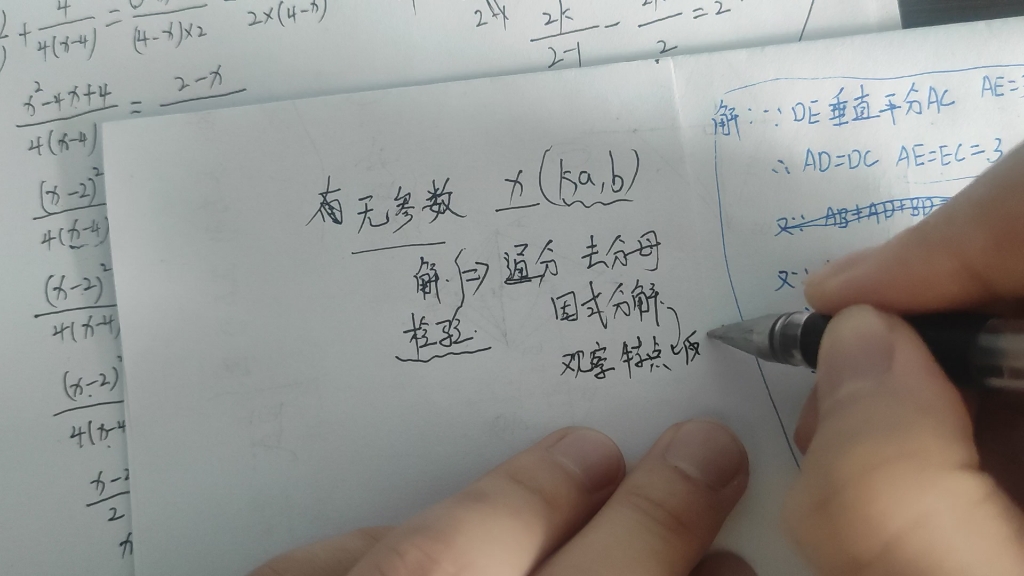 4
4(x-4)
=
(4-x)×2
2×(4-x)
2k
2-1
-
2
=2
x²-4x+4
4(x-4)
=
2-x
(x-2)²
4(x-4)
(x-2)²
4(x-4)
(x-2)²
4(x-4
x-2
2
有无参数 x(k,a,b)
解 => 通分 去分母
检验 因式分解
观察特点
解:∵DE垂直平分AC AE=3
∴AD=DC AE=EC=3
又∵ AB+AD+BD
又∵